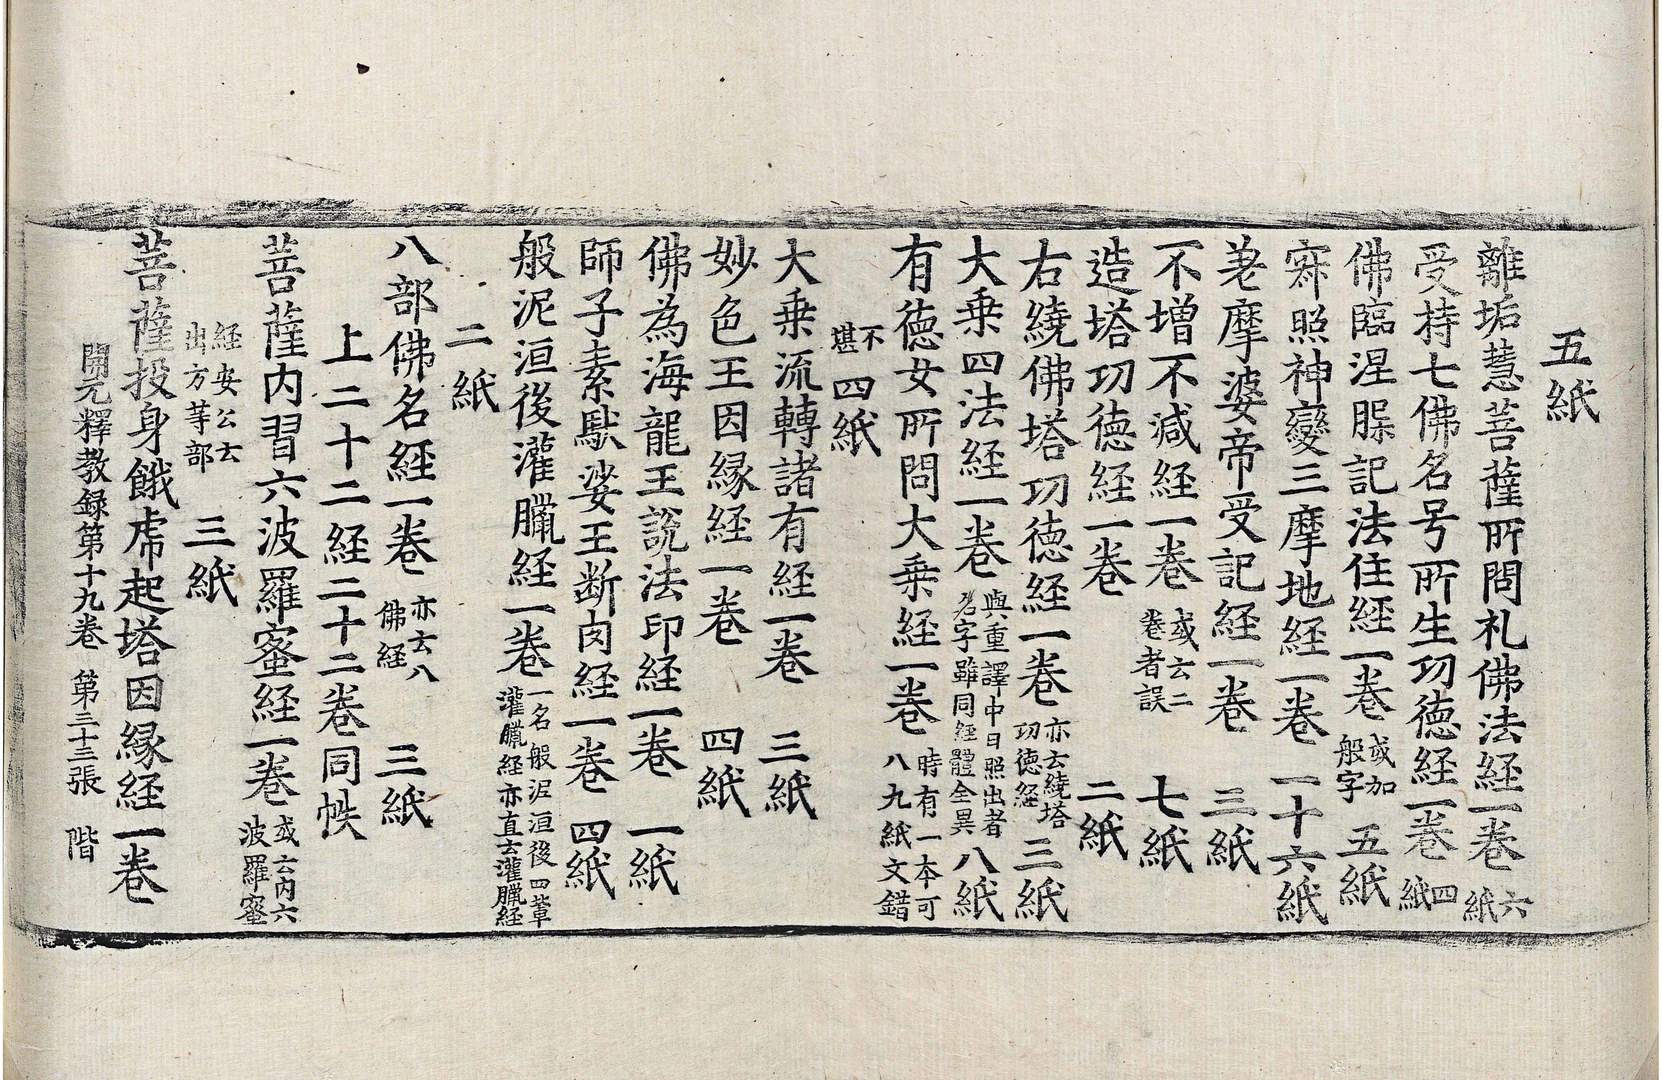 五紙
離垢慧菩薩所問礼佛法経一巻 六紙
受持七佛名号所生功徳経一巻 四紙
佛臨涅槃記法住経一巻 或加般字 五紙
寂照神變三摩地経一巻 一十六紙
差摩婆帝受記経一巻 三紙
不增不減経一巻 或云二巻者誤 七紙
造塔功徳経一巻 二紙
右繞佛塔功徳経一巻 亦云繞塔功徳経 三紙
大乗四法経一巻 與重譯中日照出者名字雖同経體全異 八紙
有徳女所問大乗経一巻 時有一本可八九紙文錯
不堪 四紙
大乗流轉諸有経一巻 三紙
妙色王因縁経一巻 四紙
佛為海龍王說法印経一巻 一紙
師子素馱娑王断肉経一巻 四紙
般泥洹後灌臘経一巻 一名般泥洹後四輩灌臘経亦直云灌臘経
二紙
八部佛名経一巻 亦云八佛経 三紙
上二十二経二十二巻同帙
菩薩内習六波羅蜜経一巻 或云内六波羅蜜
経安公云出方等部 三紙
菩薩投身餓虎起塔因縁経一巻
開元釋教録第十九巻 第三十三張 階